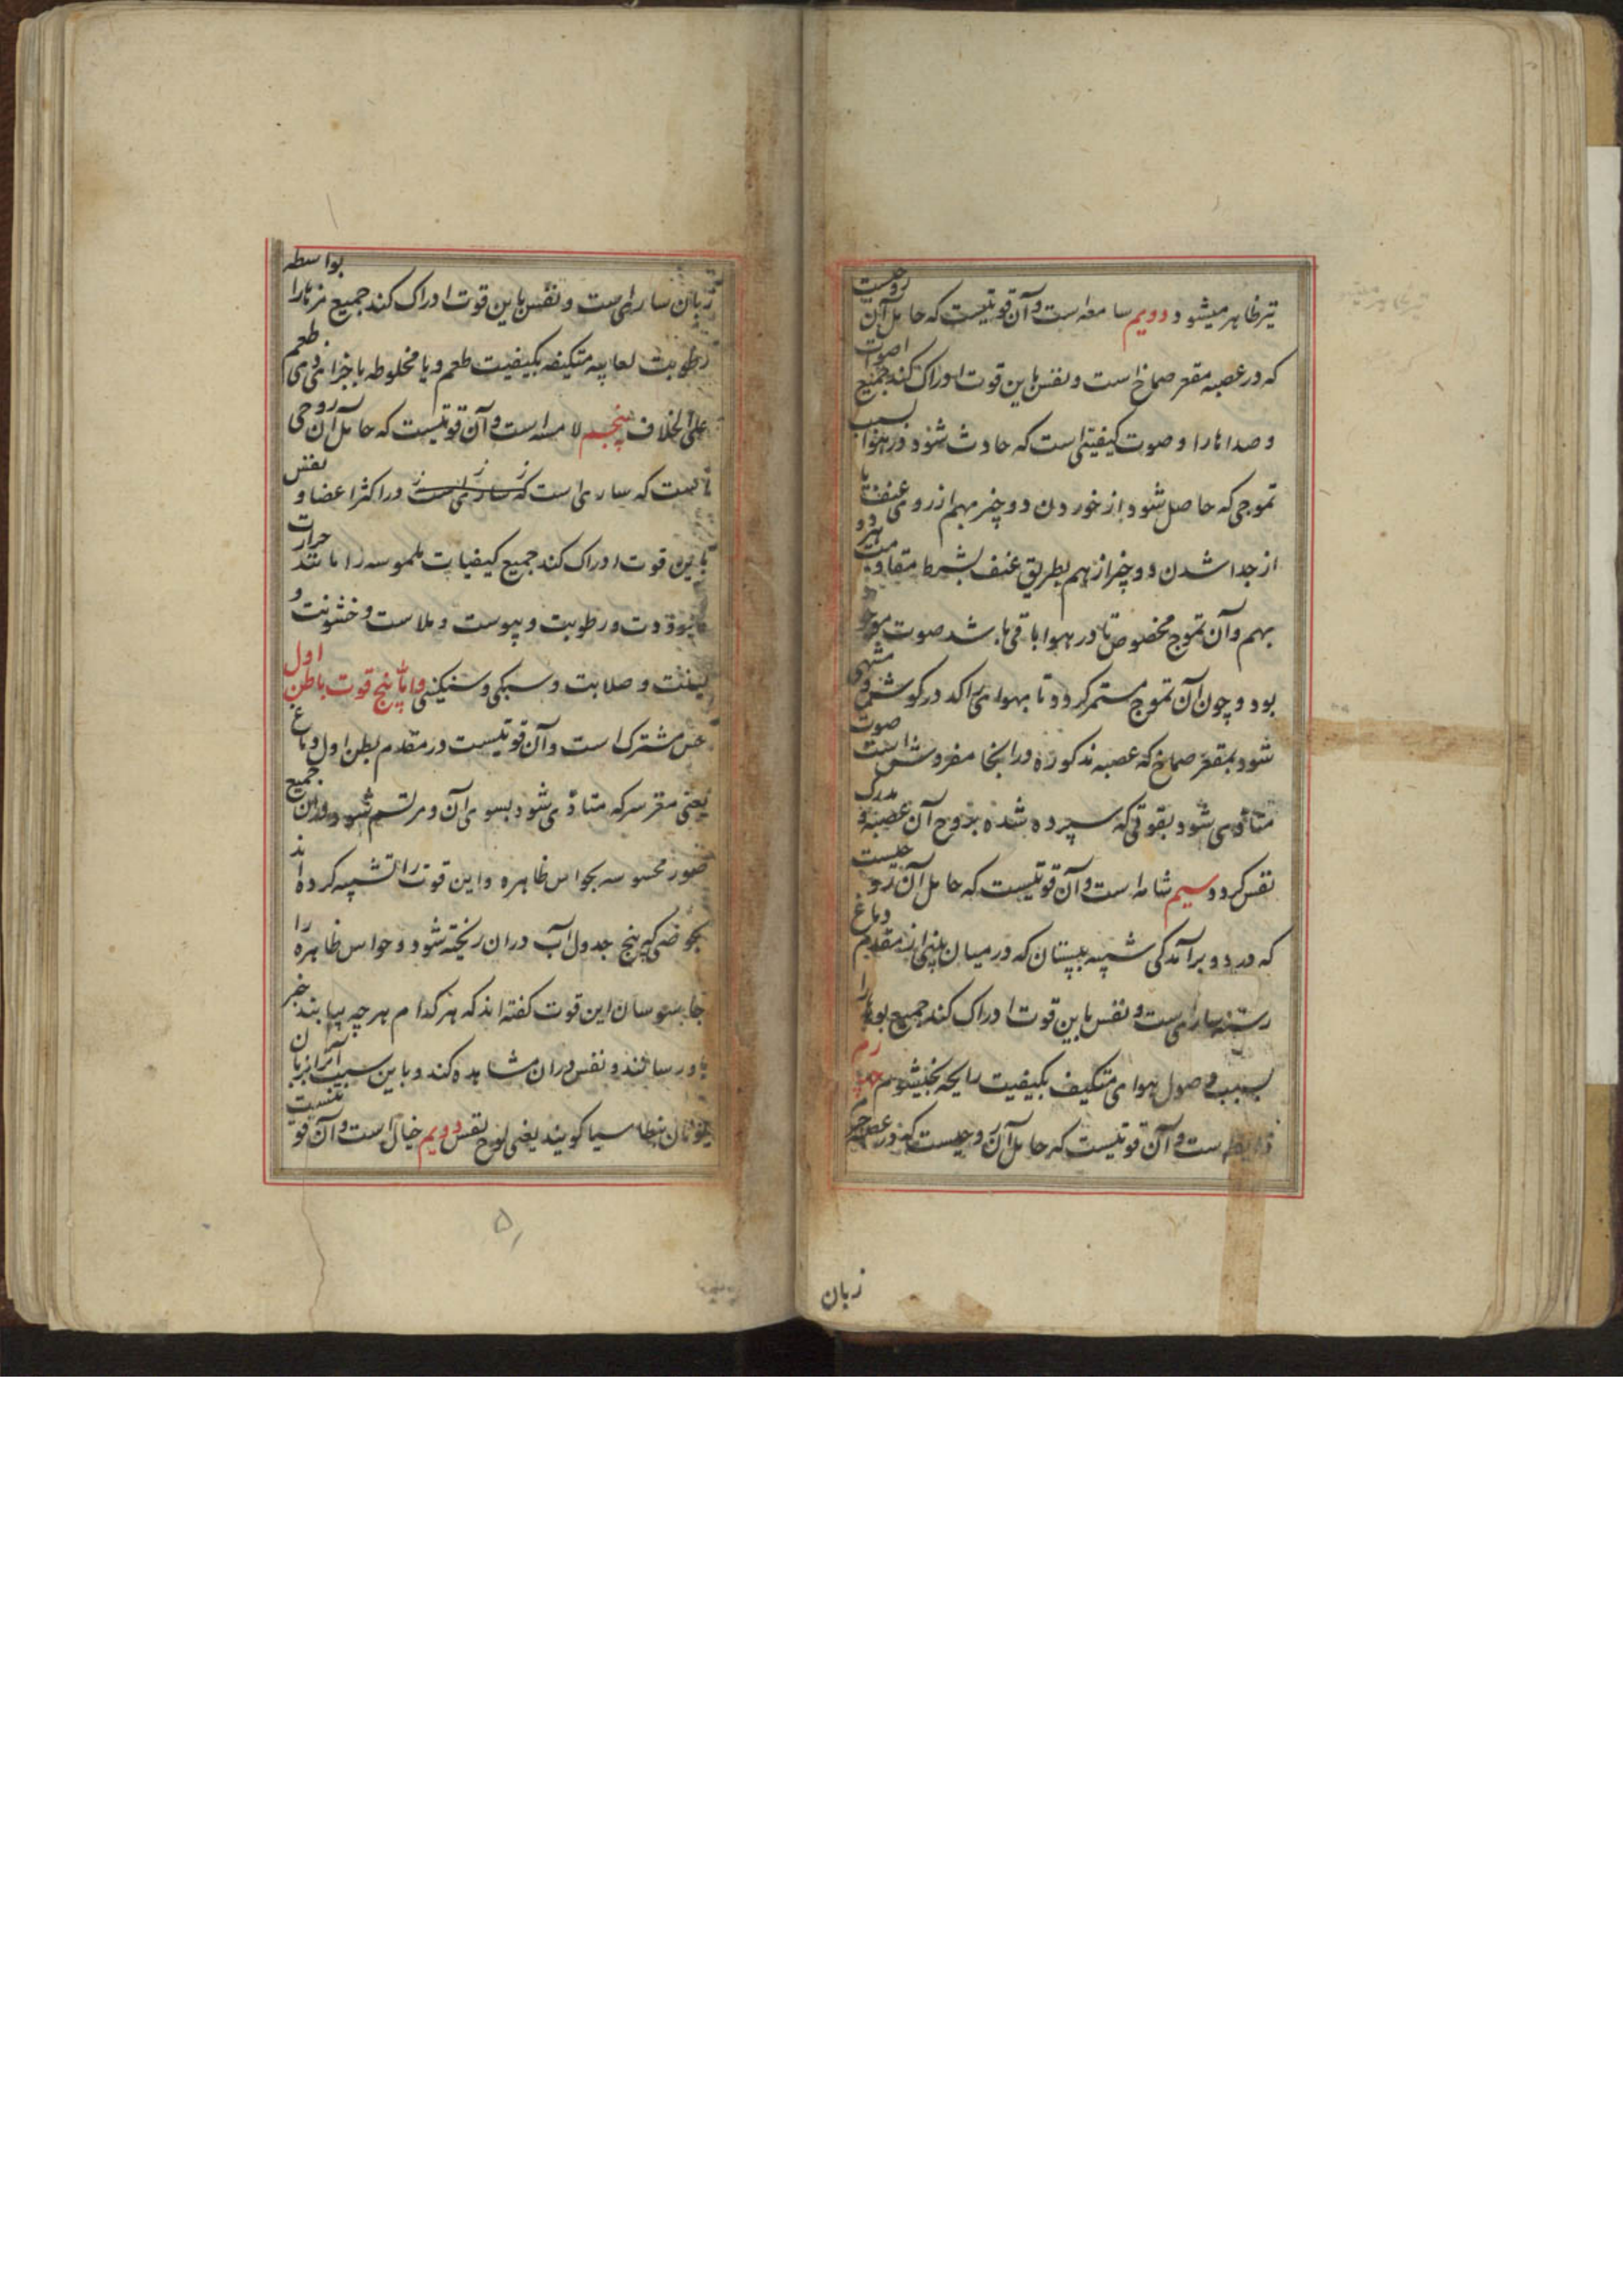 تیر ظاهر میشود دویم سامعه است و آن قوتیست که حامل آن روحیست
که در عصبه مقعر صماخ است و نفس باین قوت ادراک کند جمیع اصوات
و صداها را و صوت کیفیتی است که حادث شود در هوا بسبب
تموجی که حاصل شود از خوردن دو چیز بهم از روی عنف یا
از جدا شدن دو چیز از هم بطریق عنف بشرط مقاومت هر دو
بهم و آن تموج مخصوص تا در هوا باقی باشد صوت موجود
بود و چون آن تموج مستمر گردد تا بهوای راکد در گوش و منتهی
شود بمقعر صماخ که عصبه مذکوره در انجا مفروش است صوت
متأدی شود بقوتی که سپرده شده بروح آن عصبه و مدرک
نفس گردد سیم شامه است و آن قوتیست که حامل آن روحیست
که در دو برآمدگی شبیه بپستان که در میان بینی از مقدم دماغ
رسته ساری است و نفس باین قوت ادراک کند جمیع بوها را
بسبب وصول هوای متکیف بکیفیت رایحه بخیشوم چهارم
ذایقه است و آن قوتیست که حامل آن روحیست که در عصبه جرم
زبان
زبان ساری است و نفس باین قوت ادراک کند جمیع مزها را بواسطه
رطوبت لعابیه متکیفه بکیفیت طعم و یا مخلوطه باجزای ذی طعم
علی الخلاف پنجم لامسه است و آن قوتیست که حامل آن روحی
است که ساری است که ساری است در اکثر اعضا و نفس
باین قوت ادراک کند جمیع کیفیات ملموسه را مانند حرارت
و برودت و رطوبت و یبوست و ملاست و خشونت و
لینت و صلابت و سبکی و سنگینی و اما پنج قوت باطن اول
حس مشترک است و آن قوتیست در مقدم بطن اول دماغ
یعنی مغز سر که متأدی شود بسوی آن و مرتسم شود در ان جمیع
صور محسوسه بحواس ظاهره و این قوت را تشبیه کرده اند
بحوضی که پنج جدول آب در ان ریخته شود و حواس ظاهره را
جاسوسان این قوت گفته اند که هر کدام هر چه بیابند خبر
باو رسانند و نفس در ان مشاهده کند و باین سبب آنرا بزبان
یونان بنطاسیا گویند یعنی لوح نفس دویم خیال است و آن قوتیست
۵